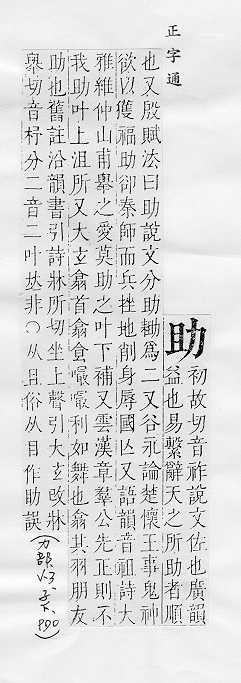 正字通
助
初故切音祚說文佐也廣韻
益也易繫辭天之所助者順
也又殷賦法曰助說文分助耡為二又谷永論楚懷王事鬼神
欲以獲福助卻秦師而兵挫地削身辱國亾又語韻音祖詩大
雅維仲山甫舉之愛莫助之叶下補又雲漢章羣公先正則不
我助叶上沮所又大玄翕首翕食嘬嘬利如舞也翕其羽朋友
助也舊註沿韻書引詩牀所切坐上聲引大玄改牀
舉切音杼分二音二叶𠀤非○从且俗从目作助誤
(力部